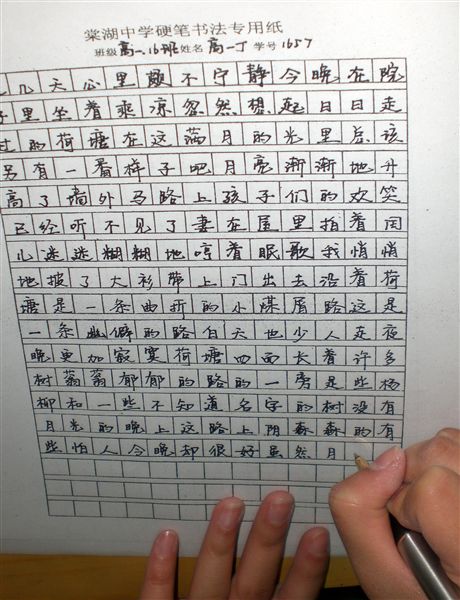 棠湖中学硬笔书法专用纸
班级 高一.16班 姓名 高一丁 学号 1657
几天心里颇不宁静今晚在院
里坐着乘凉忽然想起日日走
过的荷塘在这满月的光里总该
另有一番样子吧月亮渐渐地升
高了墙外马路上孩子们的欢笑
已经听不见了妻在屋里拍着闰
儿迷迷糊糊地哼着眠歌我悄悄
地披了大衫带上门出去沿着荷
塘是一条曲折的小煤屑路这是
一条幽僻的路白天也少人走夜
晚更加寂寞荷塘四面长着许多
树蓊蓊郁郁的路的一旁是些杨
柳和一些不知道名字的树没有
月光的晚上这路上阴森森的有
些怕人今晚却很好虽然月